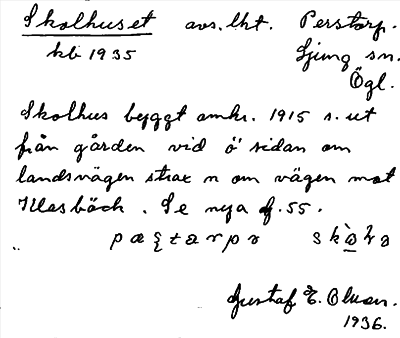 Skolhuset avs. lht. Perstorp.
kb 1935 Ljung sn.
Ögl.
Skolhus byggt omkr. 1915 s. ut
från gården vid ö sidan om
landsvägen strax n om vägen mot
Klasbäck. Se nya f. 55.
Gustaf E. Olsson.
1936.